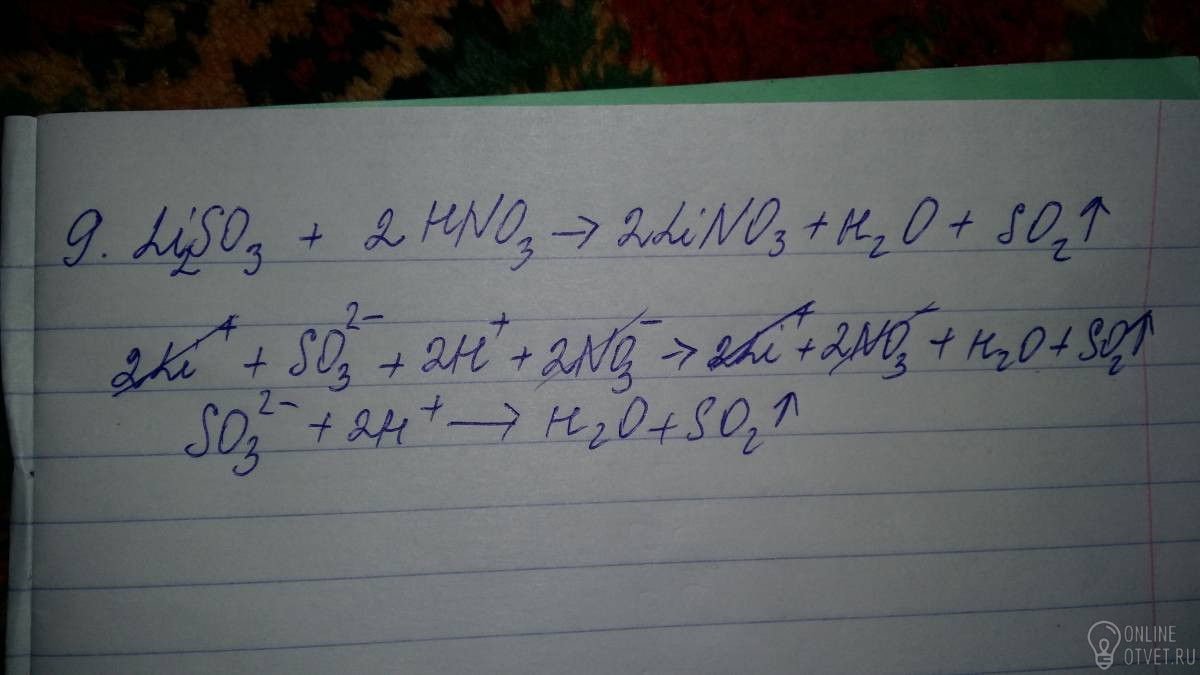 9. Li₂SO₃ + 2HNO₃ → 2LiNO₃ + H₂O + SO₂↑
2Li⁺ + SO₃²⁻ + 2H⁺ + 2NO₃⁻ → 2Li⁺ + 2NO₃⁻ + H₂O + SO₂↑
SO₃²⁻ + 2H⁺ → H₂O + SO₂↑
ONLINE
OTVET.RU